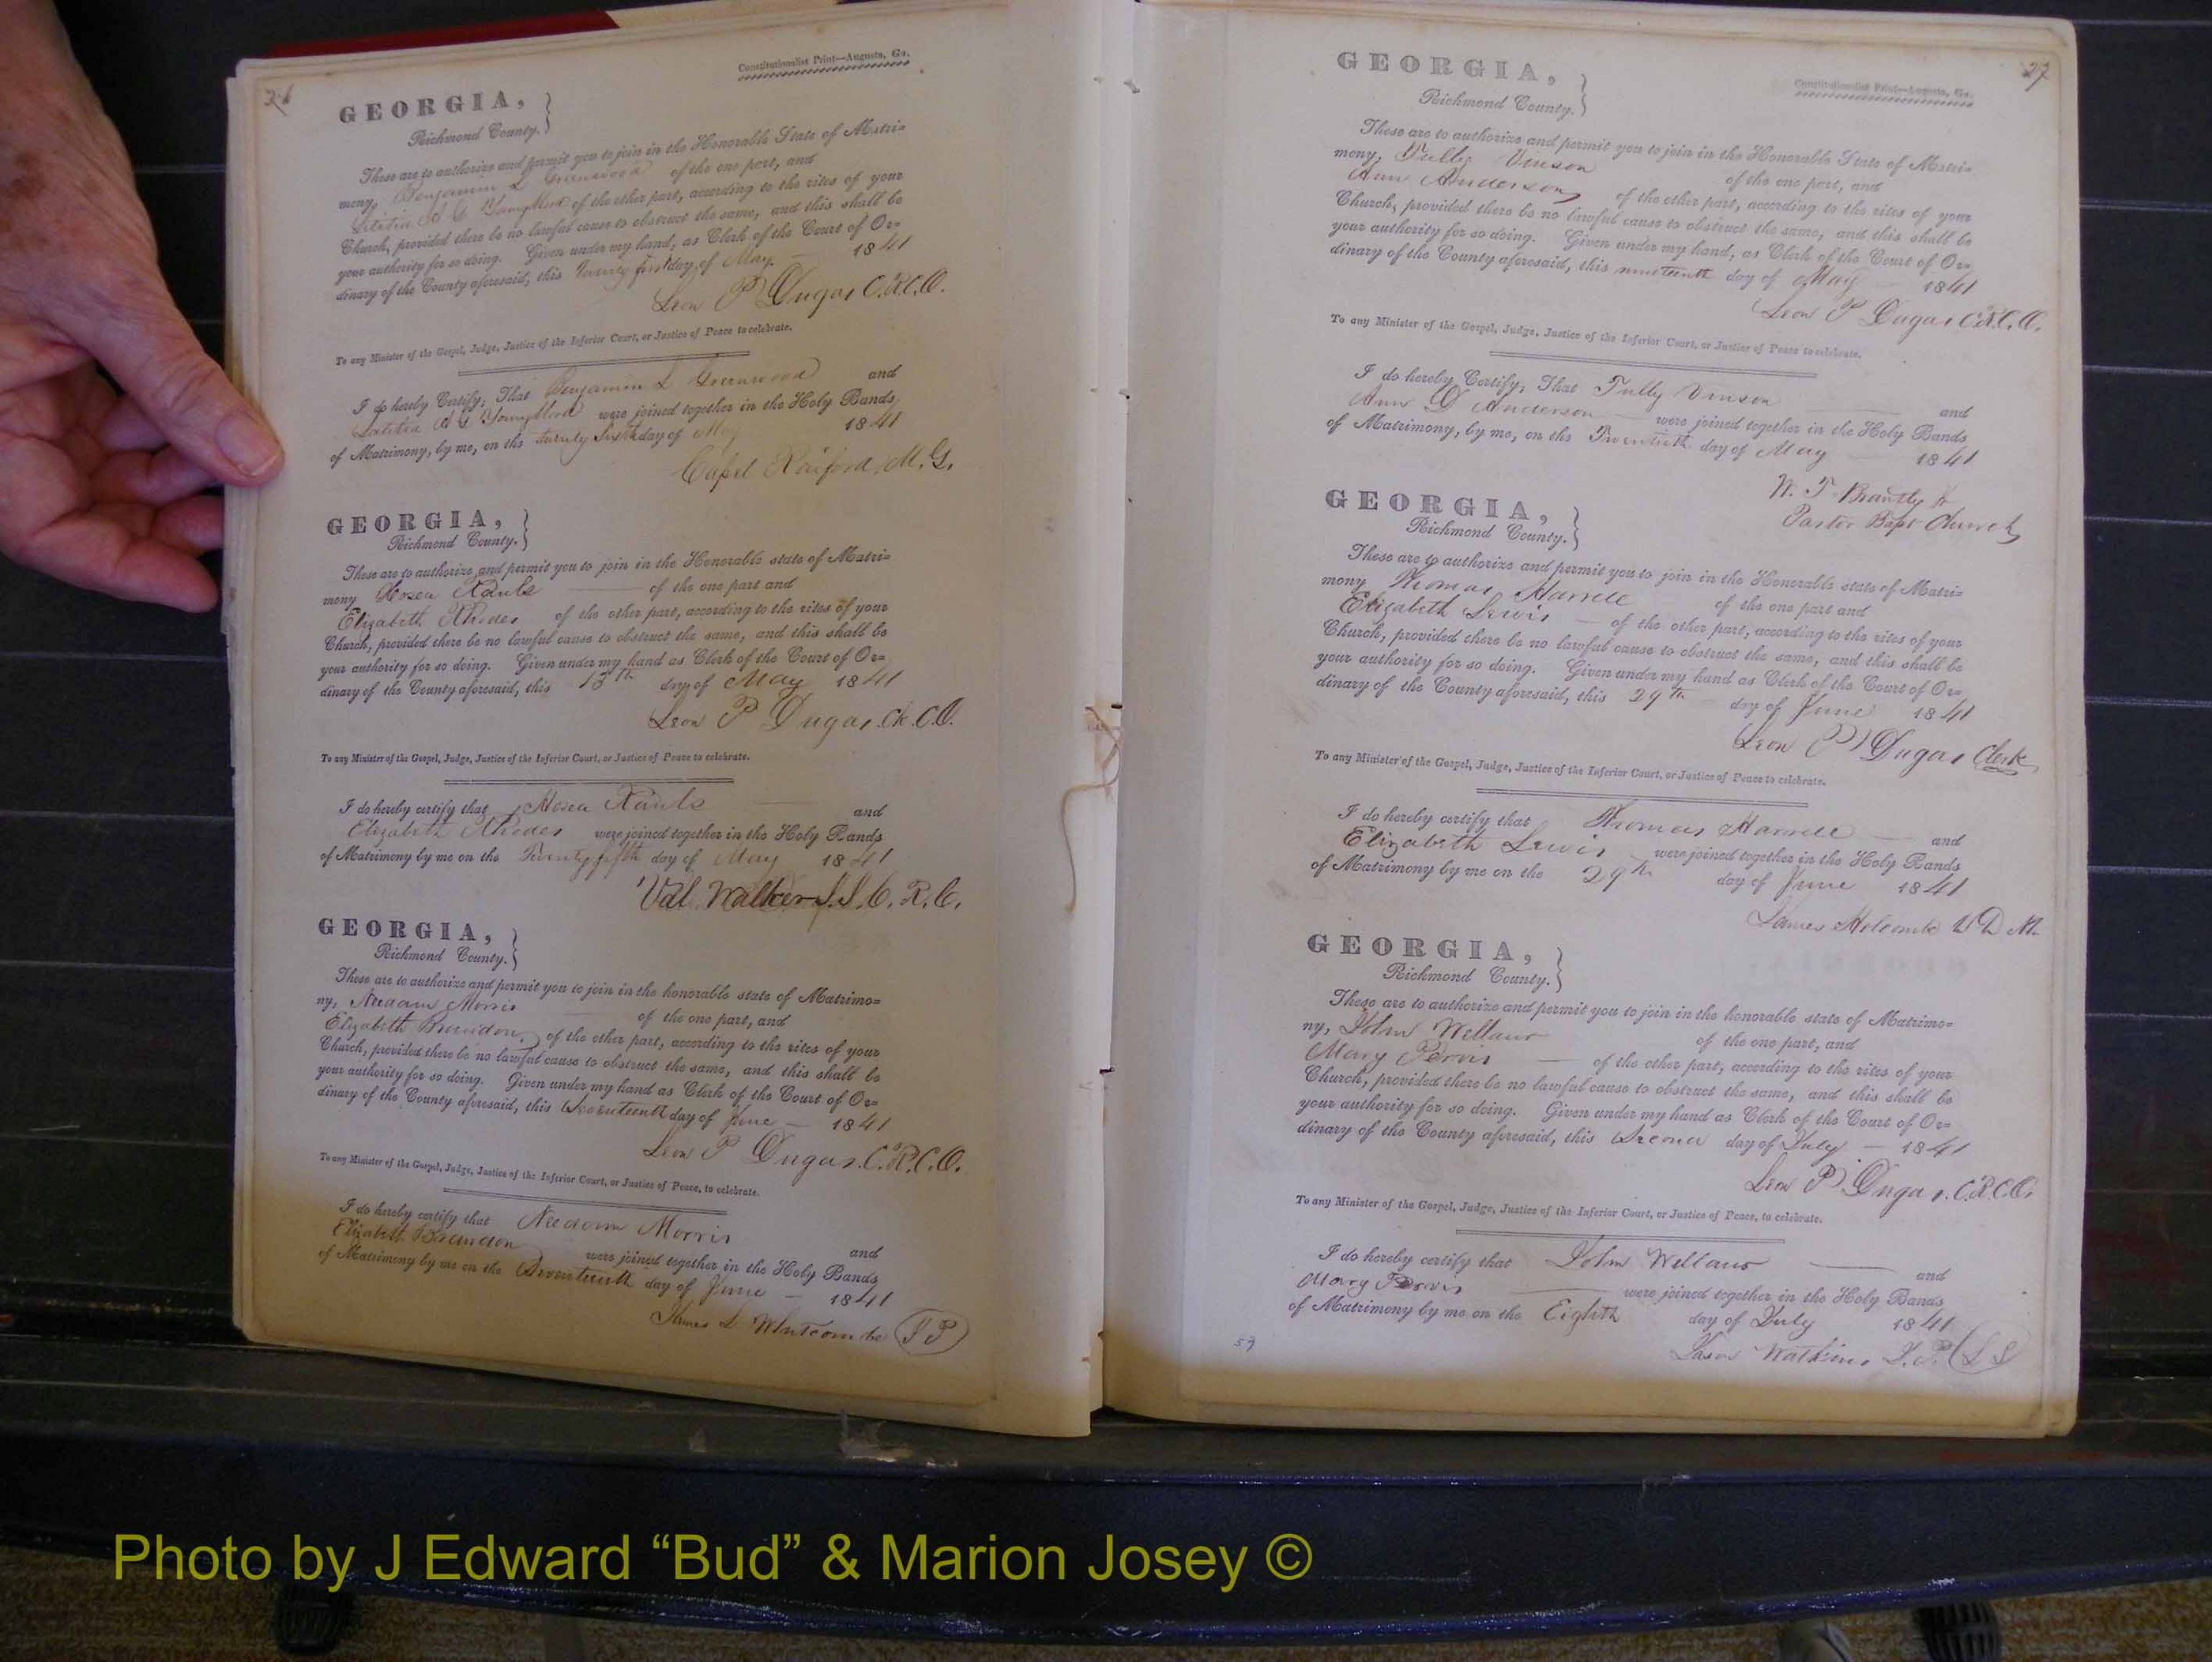 26
Constitutionalist Print—Augusta, Ga.
GEORGIA,
Richmond County.
These are to authorize and permit you to join in the Honorable State of Matri=
mony, Benjamin L Greenwood of the one part, and
Letitia A C Youngblood of the other part, according to the rites of your
Church, provided there be no lawful cause to obstruct the same, and this shall be
your authority for so doing. Given under my hand, as Clerk of the Court of Or=
dinary of the County aforesaid, this twenty first day of May 1841
Leon P Dugas C.R.C.O.
To any Minister of the Gospel, Judge, Justice of the Inferior Court, or Justice of Peace to celebrate.
I do hereby Certify, That Benjamin L Greenwood and
Letitia A C Youngblood were joined together in the Holy Bands
of Matrimony, by me, on the twenty Sixth day of May 1841
Capel Raiford, M.G.
GEORGIA,
Richmond County.
These are to authorize and permit you to join in the Honorable state of Matri=
mony Hosea Rauls of the one part and
Elizabeth Rhodes of the other part, according to the rites of your
Church, provided there be no lawful cause to obstruct the same, and this shall be
your authority for so doing. Given under my hand as Clerk of the Court of Or=
dinary of the County aforesaid, this 13th day of May 1841
Leon P Dugas. Ck. C.O.
To any Minister of the Gospel, Judge, Justice of the Inferior Court, or Justice of Peace to celebrate.
I do hereby certify that Hosea Rauls and
Elizabeth Rhodes were joined together in the Holy Bands
of Matrimony by me on the Twenty fifth day of May 1841
Val. Walker J.I.C.R.C.
GEORGIA,
Richmond County.
These are to authorize and permit you to join in the honorable state of Matrimo=
ny, Needam Morris of the one part, and
Elizabeth Brandon of the other part, according to the rites of your
Church, provided there be no lawful cause to obstruct the same, and this shall be
your authority for so doing. Given under my hand as Clerk of the Court of Or=
dinary of the County aforesaid, this Seventeenth day of June 1841
Leon P Dugas. C.R.C.O.
To any Minister of the Gospel, Judge, Justice of the Inferior Court, or Justice of Peace, to celebrate.
I do hereby certify that Needam Morris and
Elizabeth Brandon were joined together in the Holy Bands
of Matrimony by me on the Seventeenth day of June 1841
James L Whitcombe JP
27
Constitutionalist Print—Augusta, Ga.
GEORGIA,
Richmond County.
These are to authorize and permit you to join in the Honorable State of Matri=
mony, Tully Vinson of the one part, and
Ann Anderson of the other part, according to the rites of your
Church, provided there be no lawful cause to obstruct the same, and this shall be
your authority for so doing. Given under my hand, as Clerk of the Court of Or=
dinary of the County aforesaid, this nineteenth day of May 1841
Leon P Dugas C.R.C.O.
To any Minister of the Gospel, Judge, Justice of the Inferior Court, or Justice of Peace to celebrate.
I do hereby Certify, That Tully Vinson and
Ann D Anderson were joined together in the Holy Bands
of Matrimony, by me, on the Twentieth day of May 1841
W. T Brantly Jr
Pastor Bapt Church
GEORGIA,
Richmond County.
These are to authorize and permit you to join in the Honorable state of Matri=
mony Thomas Harrell of the one part and
Elizabeth Lewis of the other part, according to the rites of your
Church, provided there be no lawful cause to obstruct the same, and this shall be
your authority for so doing. Given under my hand as Clerk of the Court of Or=
dinary of the County aforesaid, this 29th day of June 1841
Leon P Dugas Clerk
To any Minister of the Gospel, Judge, Justice of the Inferior Court, or Justice of Peace to celebrate.
I do hereby certify that Thomas Harrell and
Elizabeth Lewis were joined together in the Holy Bands
of Matrimony by me on the 29th day of June 1841
James Holcombe V D M.
GEORGIA,
Richmond County.
These are to authorize and permit you to join in the honorable state of Matrimo=
ny, John of the one part, and
Mary Pervis of the other part, according to the rites of your
Church, provided there be no lawful cause to obstruct the same, and this shall be
your authority for so doing. Given under my hand as Clerk of the Court of Or=
dinary of the County aforesaid, this Second day of July 1841
Leon P Dugas. C.R.C.O.
To any Minister of the Gospel, Judge, Justice of the Inferior Court, or Justice of Peace, to celebrate.
I do hereby certify that John and
Mary Pervis were joined together in the Holy Bands
of Matrimony by me on the Eighth day of July 1841
Watkins J.P. (LS)
57
Photo by J Edward “Bud” & Marion Josey ©